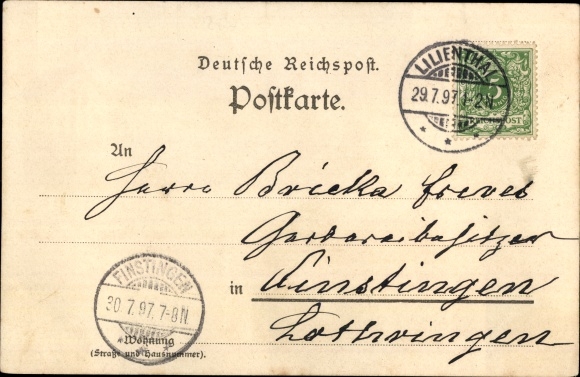 Deutsche Reichspost.
Postkarte.
LILIENTHAL
29.7.97.1-2N.
5
REICHSPOST
An
Herrn Bricka freres
Gerbereibesitzer
in Finstingen
Lothringen
FINSTINGEN
30.7.97.7-8N.
Wohnung
(Straße und Hausnummer).